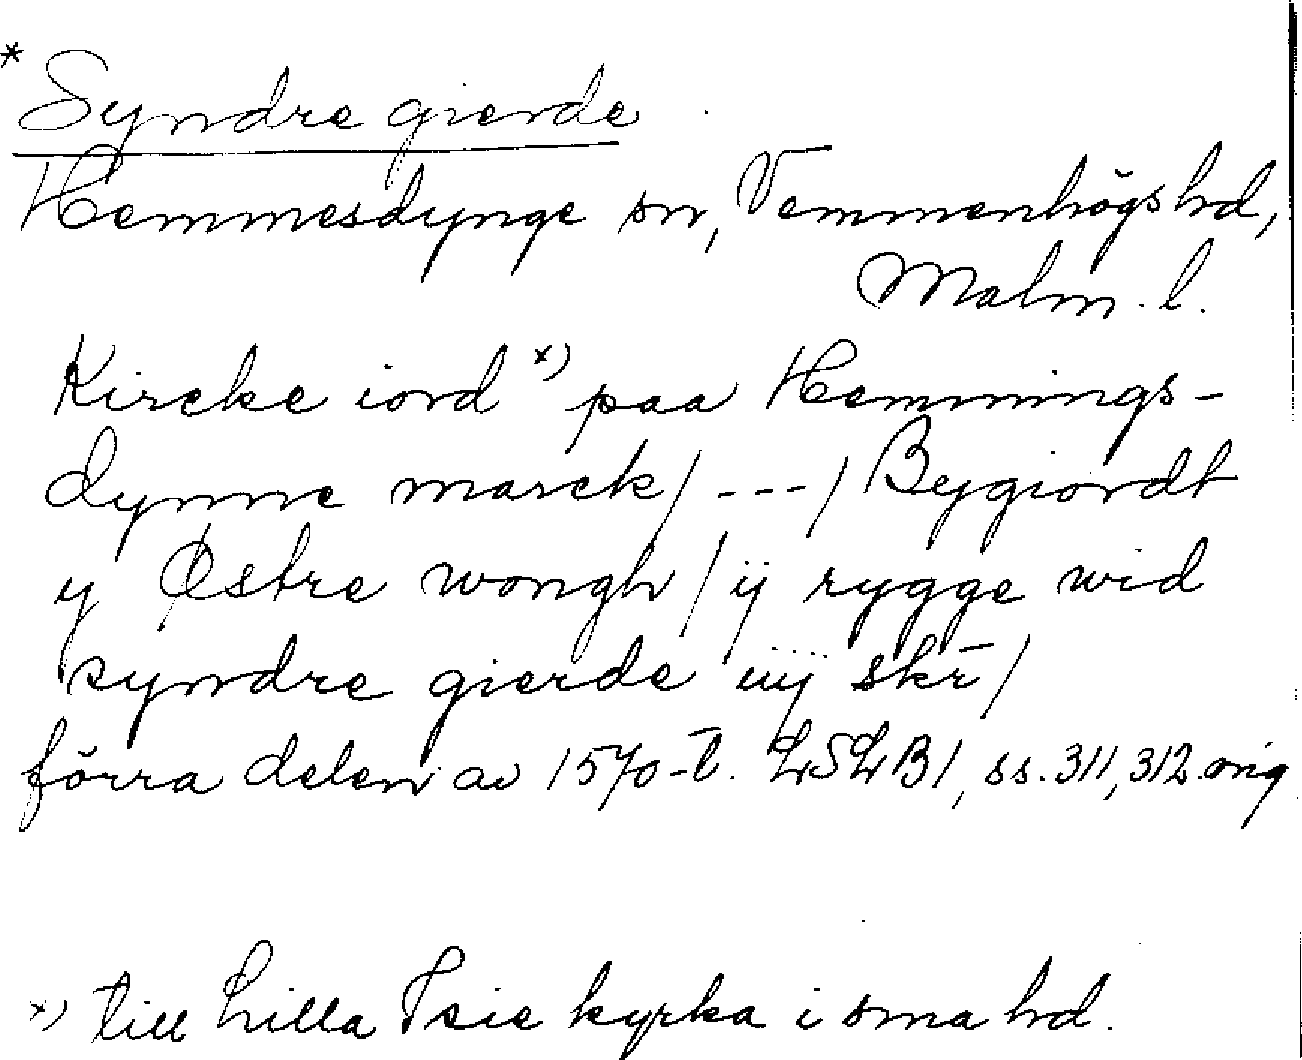 * Syndre gierde
Hemmesdynge sn, Vemmenhögs hd,
Malm. l.
Kircke iord x) paa Hemmings-
dynne marck / --- / Bygiordt
y Østre wongh / ij rygge wid
syndre gierde iiij skr̄ /
förra delen av 1570-t. LSLB1, ss. 311, 312. orig
x) till Lilla Isie kyrka i sma hd.